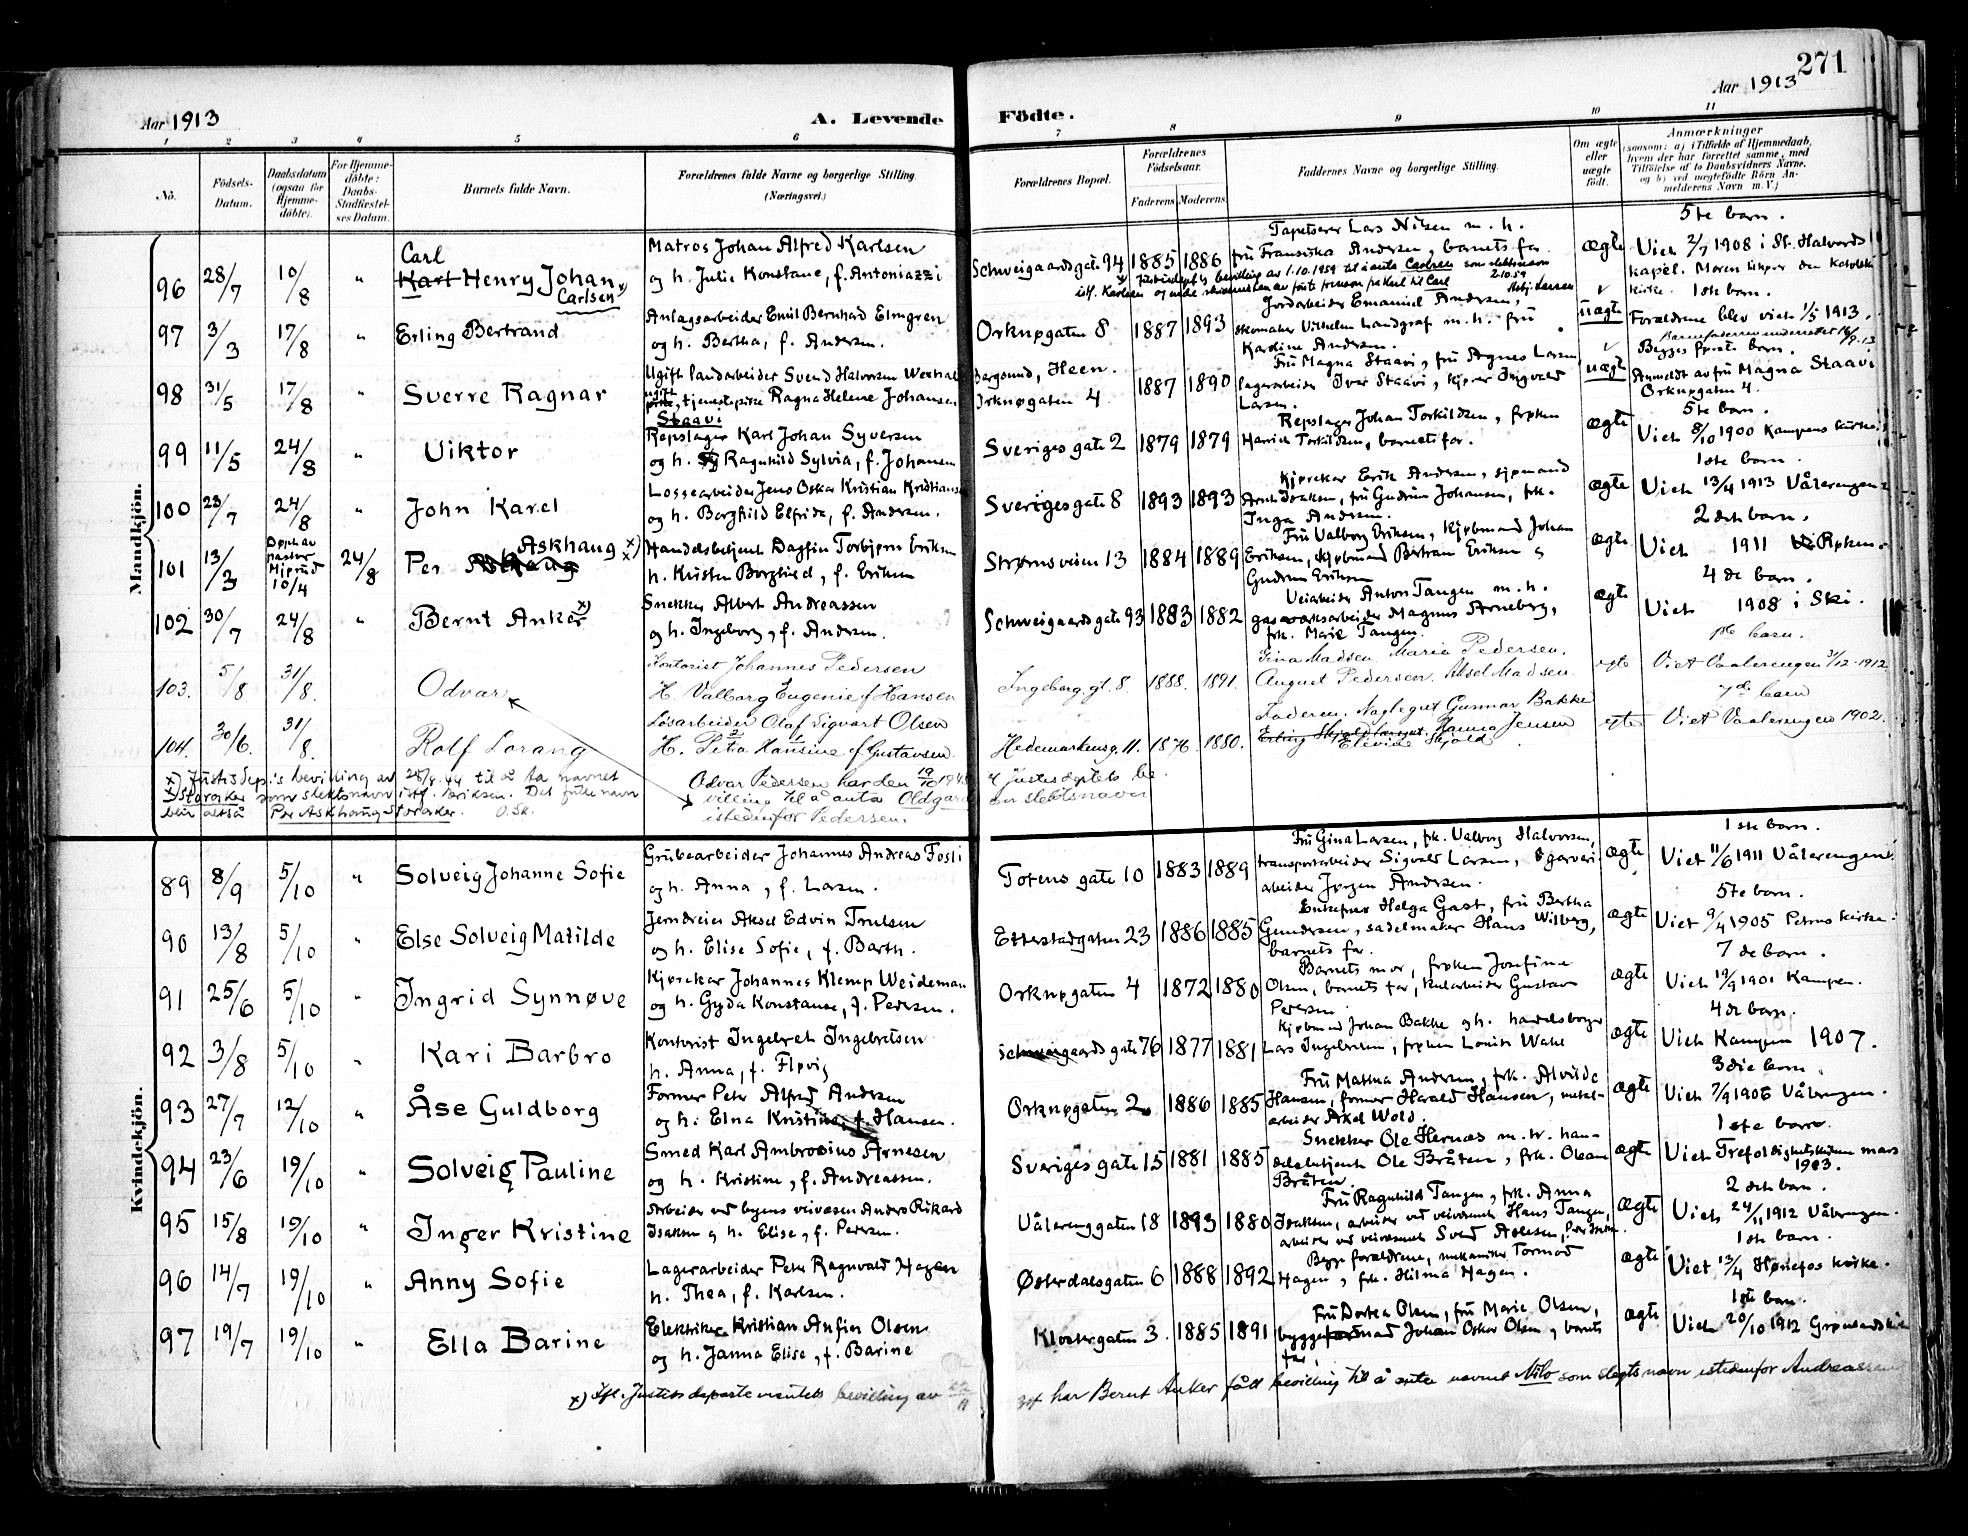 271
Aar 1913
A. Levende
Födte.
Aar 1913
1 2 3 4 5 6 7 8 9 10 11
No.
Födsels-Datum.
Daabsdatum (ogsaa for Hjemmedöbte).
For Hjemmedöbte: Daabs-Stadfæstelses Datum.
Barnets fulde Navn.
Forældrenes fulde Navne og borgerlige Stilling. (Næringsvei.)
Forældrenes Bopæl.
Forældrenes Födselsaar.
Faderens Moderens
Faddernes Navne og borgerlige Stilling.
Om ægte eller uægte födt.
Anmærkninger
(saasom: a) i Tilfælde af Hjemmedaab, hvem der har forrettet samme, med Tilföielse af to Daabsvidners Navne, og b) ved uægtefödte Börn Anmelderens Navn m. V.)
Mandkjön.
96 28/7 10/8 " Carl Henry Johan Carlsen x)
Matros Johan Alfred Karlsen
og h. Julie Konstanse, f. Antoniazzi
Schweigaardsgate 94 1885 1886
Tapetserer Lars Nilsen m. h.
fru Fransiska Andersen, barnets far.
ægte
5te barn.
Viet 2/7 1908 i St. Halvards
kapel. Moren tilhører den katolske
kirke.
97 3/3 17/8 " Erling Bertrand
Anlagsarbeider Emil Bernhard Elmgren
og h. Bertha, f. Andersen.
Orknøgaten 8 1887 1893
Jordarbeider Emanuel Andersen,
skomaker Vilhelm Landgraf m. h. fru
Karoline Andersen.
uægte
1ste barn.
Forældrene blev viet 1/5 1913.
98 31/5 17/8 " Sverre Ragnar
Ugift landarbeider Svend Halvorsen
tjenestepike Ragna Helene Johansen
Staavi
Bergsund, Heen.
Orknøgaten 4 1887 1890
Fru Magna Staavi, fru Agnes Larsen,
lagerarbeider Iver Staavi, kjører Ingvald
Larsen.
uægte
Begges første barn.
Anmeldt av fru Magna Staavi
Orknøgaten 4.
99 11/5 24/8 " Viktor
Repslager Karl Johan Syversen
og h. Ragnhild Sylvia, f. Johansen
Sveriges gate 2 1879 1879
Repslager Johan Torkildsen, frøken
Henrich Torkildsen, barnets far.
ægte
5te barn.
Viet 8/10 1900 Kampens kirke.
100 23/7 24/8 " John Karel
Lossearbeider Jens Oskar Kristian Kristiansen
og h. Borghild Elfrida, f. Andersen.
Sveriges gate 8 1893 1893
Kjørekar Erik Andersen, sjømand
Arnt Isaksen, fru Gudrun Johansen, frk.
Inga Andersen.
ægte
1ste barn.
Viet 13/4 1913 Vålerengen
101 13/3 Døpt av pastor Hjprud 10/4 24/8 Per Askhaug x)
Handelsbetjent Dagfin Torbjørn Eriksen
h. Kirsten Borghild, f. Eriksen
Strømsveien 13 1884 1889
Fru Valborg Eriksen, Kjøbmand Johan
Eriksen, kjøbmand Bertram Eriksen og
Gudrun Eriksen
ægte
2det barn.
Viet 1911 Røken.
102 30/7 24/8 " Bernt Anker x)
Snekker Albert Andreassen
og h. Ingeborg, f. Andersen.
Schweigaards gate 93 1883 1882
Veiarbeider Anton Tangen m. h.
gasverksarbeider Magnus Arneberg,
frk. Marie Tangen.
ægte
4de barn.
Viet 1908 i Ski.
103. 5/8 31/8. Odvar
Kontorist Johannes Pedersen
H. Valborg Eugenie f. Hansen
Ingeborg gt. 8 1888. 1891.
Gina Madsen. Maria Pedersen.
August Pedersen. Aksel Madsen.
egte
1ste barn.
Viet Vaalerengen 31/12-1912
104. 30/6. 31/8. Rolf Lorang
Løsarbeider Olaf Sigvart Olsen
H. Petra Hansine f. Gustavsen
Hedemarkens g. 11. 1876 1880.
Faderen. Naglegut Gunnar Bakke
Hanna Jensen
Elevine Skjold
egte
7de barn
Viet Vaalerengen 1902.
x) Justisdep.'s bevilling av 28/8.44 til å ta navnet
Storaker som slektsnavn i stf. Eriksen. Det fulle navn
blir altså Per Askhaug Storaker. O.Sk.
Odvar Pedersen har den 19/10 1945 Justisdeptets be-
villing til å anta Oldgard som slektsnavn
istedenfor Pedersen.
Kvindekjön.
89 8/9 5/10 " Solveig Johanne Sofie
Grubearbeider Johannes Andreas Fosli
og h. Anna, f. Larsen.
Totens gate 10 1883 1889
Fru Gina Larsen, frk. Valborg Halvorsen,
transportarbeider Sigvald Larsen, garveri-
arbeider Jørgen Andersen.
ægte
1ste barn.
Viet 11/6 1911 Vålerengen.
90 13/8 5/10 " Else Solveig Matilde
Jerndreier Aksel Edvin Trulsen
og h. Elise Sofie, f. Barth.
Etterstadgaten 23 1886 1885
Enkefrue Helga Gast, fru Bertha
Gundersen, sadelmaker Hans Wilberg,
barnets far.
ægte
5te barn.
Viet 9/4 1905 Petrus kirke.
91 25/6 5/10 " Ingrid Synnøve
Kjørekar Johannes Klemp Weideman
og h. Gyda Konstanse, f. Pedersen.
Orknøgaten 4 1872 1880
Barnets mor, frøken Josefine
Olsen, barnets far, kularbeider Gustav
Pedersen
ægte
7de barn.
Viet 19/9 1901 Kampen.
92 3/8 5/10 " Kari Barbro
Kontorist Ingebret Ingebretsen
h. Anna, f. Fløvig
Schweigaards gate 76 1877 1881
Kjøbmand Johan Bakke og h. handelsborger
Lars Ingebretsen, frøken Louise Wahl
ægte
4de barn.
Viet Kampen 1907.
93 27/7 12/10 " Åse Guldborg
Former Peter Alfred Andersen
og h. Elna Kristine, f. Hansen.
Orknøgaten 2 1886 1885
Fru Matina Andersen, frk. Alvilde
Hansen, former Harald Hansen, metal-
arbeider Axel Wold.
ægte
3die barn.
Viet 7/9 1906 Vålerengen.
94 23/6 19/10 " Solveig Pauline
Smed Karl Ambrosius Arnesen
og h. Kristine, f. Andreassen.
Sveriges gate 15 1881 1885
Snekker Ole Hernæs m. h. han-
delsbetjent Ole Bråten, frk. Olean
Bråten.
ægte
1ste barn.
Viet Trefoldighetskirken mars
1903.
95 15/8 19/10 " Inger Kristine
Arbeider ved byens veivæsen Anders Rikard
Isaksen og h. Elise, f. Pedersen.
Vålerenggaten 18 1893 1880
Fru Ragnhild Tangen, frk. Anna
Isaksen, arbeider ved veivæsenet Hans Tangen,
arbeider ved veivæsenet
ægte
2det barn.
Viet 24/11 1912 Vålerengen.
96 14/7 19/10 " Anny Sofie
Lagerarbeider Peter Ragnvald Hagen
h. Thea, f. Karlsen.
Østerdalsgaten 6 1888 1892
Begge forældrene, mekaniker Tormod
Hagen, frk. Hilma Hagen.
ægte
1ste barn.
Viet 13/4 Hønefos kirke.
97 19/7 19/10 " Ella Barine
Elektriker Kristian Anfin Olsen
og h. Janna Elise, f. Barine
Klostergaten 3. 1885 1891
Fru Dortea Olsen, fru Marie Olsen,
Johan Oskar Olsen, barnets
far.
ægte
1ste barn.
Viet 20/10 1912 Grønlands kirke
x) Ifl. Justisdepartementets bevilling av 22/11 har Bernt Anker fått bevilling til å anta navnet Nilo som slegtsnavn istedenfor Andreassen